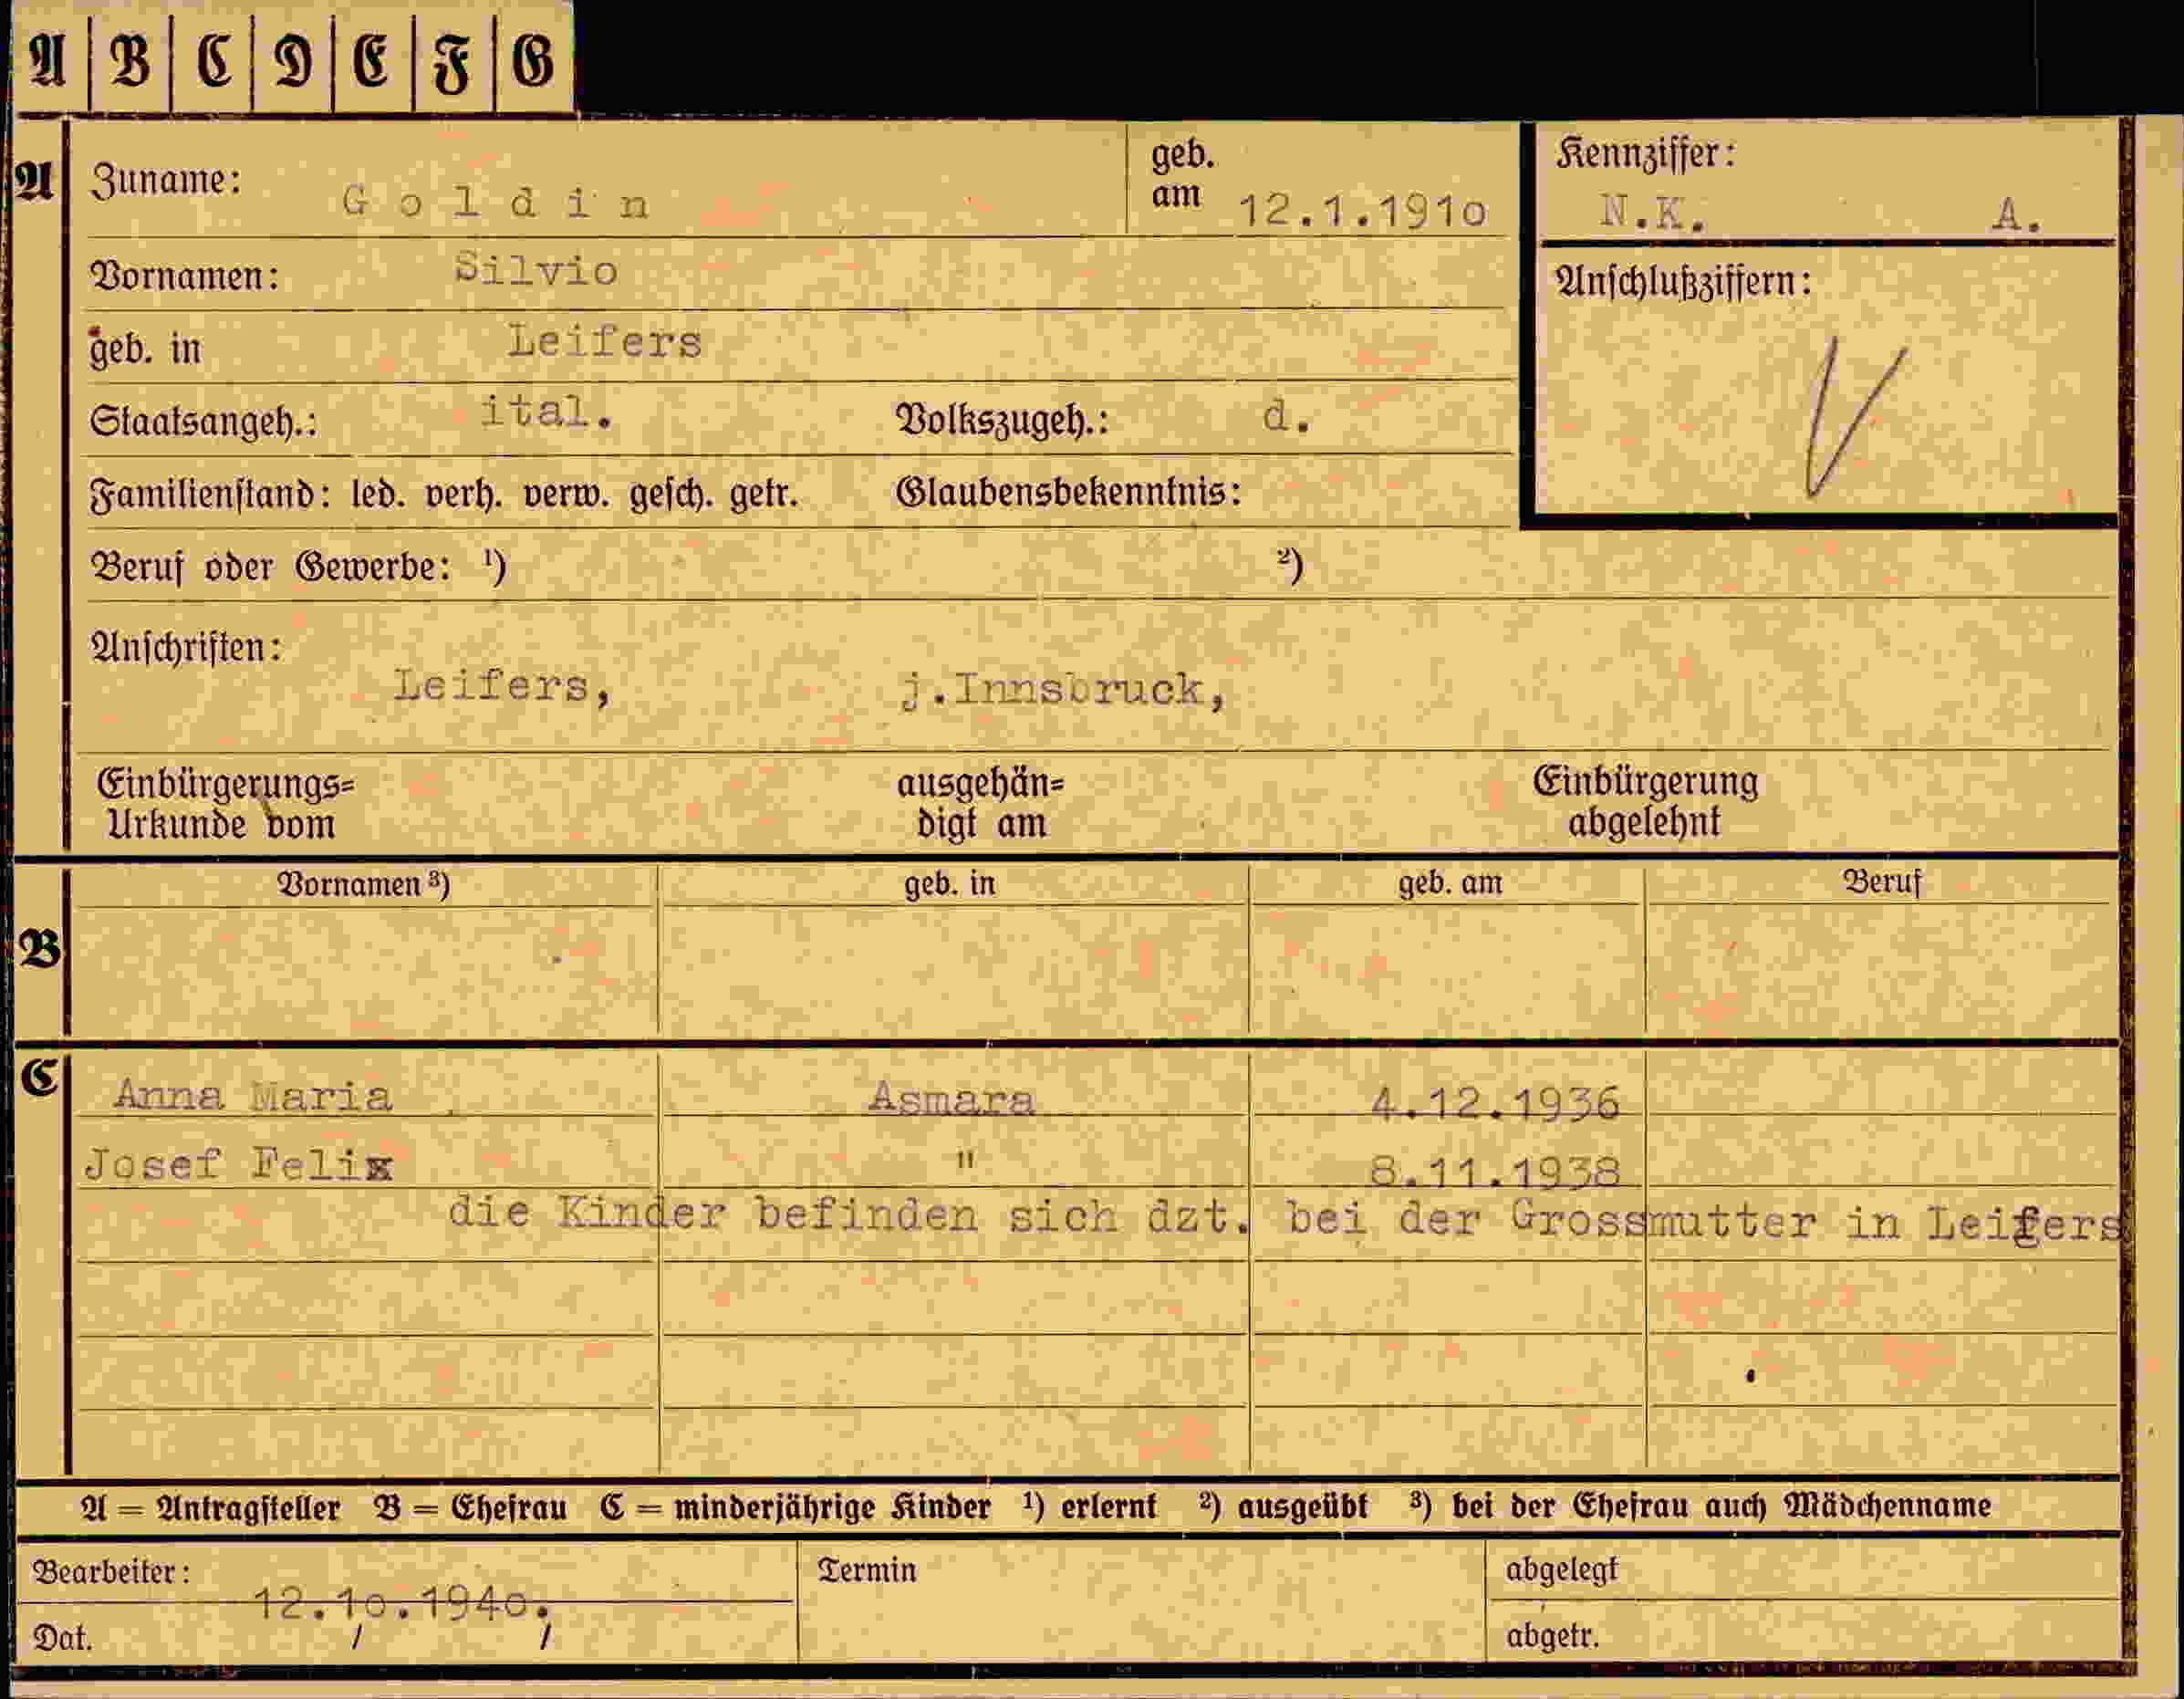 A B C D E F G
A Zuname: Goldin geb. am 12.1.1910 Kennziffer: N.K. A.
Vornamen: Silvio
Anschlußziffern:
geb. in Leifers
V
Staatsangeh.: ital. Volkszugeh.: d.
Familienstand: led. verh. verw. gesch. getr. Glaubensbekenntnis:
Beruf oder Gewerbe: ¹) ²)
Anschriften:
Leifers, j.Innsbruck,
Einbürgerungs= ausgehän= Einbürgerung
Urkunde vom digt am abgelehnt
Vornamen ³) geb. in geb. am Beruf
B
C Anna Maria Asmara 4.12.1936
Josef Felix " 8.11.1938
die Kinder befinden sich dzt. bei der Grossmutter in Leifers
A = Antragsteller B = Ehefrau C = minderjährige Kinder ¹) erlernt ²) ausgeübt ³) bei der Ehefrau auch Mädchenname
Bearbeiter: Termin abgelegt
12.10.1940.
Dat. / / abgetr.